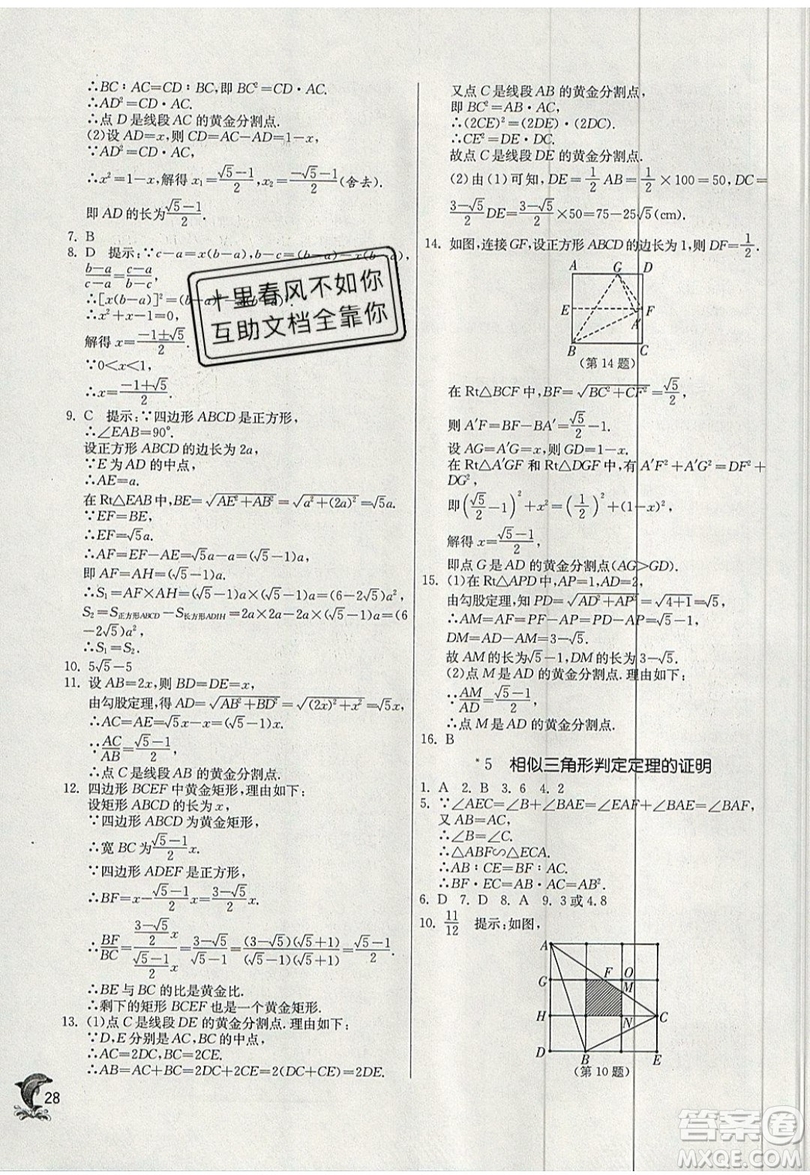 ∴BC∶AC=CD∶BC,即BC²=CD·AC.
∴AD²=CD·AC.
∴点D是线段AC的黄金分割点.
(2)设AD=x,则CD=AC-AD=1-x,
∵AD²=CD·AC,
∴x²=1-x,解得x₁=(√5-1)/2,x₂=(-√5-1)/2(舍去).
即AD的长为(√5-1)/2.
7. B
8. D 提示:∵c-a=x(b-a),b-c=(b-a)-x(b-a),
(b-a)/(c-a)=(c-a)/(b-c)
∴[x(b-a)]²
∴x²+x-1=0,
解得x=(-1±√5)/2.
∵0<x<1,
∴x=(-1+√5)/2.
9. C 提示:∵四边形ABCD是正方形,
∴∠EAB=90°.
设正方形ABCD的边长为2a,
∵E为AD的中点,
∴AE=a.
在Rt△EAB中,BE=√(AE²+AB²)=√(a²+(2a)²)=√5a.
∵EF=BE,
∴EF=√5a.
∴AF=EF-AE=√5a-a=(√5-1)a,
即AF=AH=(√5-1)a.
∴S₁=AF×AH=(√5-1)a×(√5-1)a=(6-2√5)a²,
S₂=S正方形ABCD-S长方形ADIH=2a×2a-2a×(√5-1)a=(6
-2√5)a²,
∴S₁=S₂.
10. 5√5-5
11. 设AB=2x,则BD=DE=x,
由勾股定理,得AD=√(AB²+BD²)=√((2x)²+x²)=√5x,
∴AC=AE=√5x-x=(√5-1)x.
∵AC/AB=(√5-1)/2,
∴点C是线段AB的黄金分割点.
12. 四边形BCEF中黄金矩形,理由如下:
设矩形ABCD的长为x,
∵四边形ABCD为黄金矩形,
∴宽BC为(√5-1)/2x.
∵四边形ADEF是正方形,
∴BF=x-(√5-1)/2x=(3-√5)/2x,
∴BF/BC=((3-√5)/2x)/((√5-1)/2x)=(3-√5)/(√5-1)=(3-√5)(√5+1)/(√5-1)(√5+1)=(√5-1)/2.
∴BE与BC的比是黄金比.
∴剩下的矩形BCEF也是一个黄金矩形.
13. (1)点C是线段DE的黄金分割点.理由如下:
∵D,E分别是AC,BC的中点,
∴AC=2DC,BC=2CE.
∴AB=AC+BC=2DC+2CE=2DE.
28
又点C是线段AB的黄金分割点,
即BC²=AB·AC,
∴(2CE)²=(2DE)·(2DC).
∴CE²=DE·DC.
故点C是线段DE的黄金分割点.
(2)由(1)可知,DE=1/2AB=1/2×100=50,DC=
(3-√5)/2DE=(3-√5)/2×50=75-25√5(cm).
14. 如图,连接GF,设正方形ABCD的边长为1,则DF=1/2.
A G D
E F
A′
B C
(第14题)
在Rt△BCF中,BF=√(BC²+CF²)=√5/2,
则A′F=BF-BA′=√5/2-1.
设AG=A′G=x,则GD=1-x.
在Rt△A′GF和Rt△DGF中,有A′F²+A′G²=DF²+
DG²,
即(√5/2-1)²+x²=(1/2)²+(1-x)²,
解得x=(√5-1)/2,
即点G是AD的黄金分割点(AG>GD).
15. (1)在Rt△APD中,AP=1,AD=2,
由勾股定理,知PD=√(AD²+AP²)=√(4+1)=√5,
∴AM=AF=PF-AP=PD-AP=√5-1,
DM=AD-AM=3-√5.
故AM的长为√5-1,DM的长为3-√5.
(2)点M是AD的黄金分割点.理由如下:
∵AM/AD=(√5-1)/2,
∴点M是AD的黄金分割点.
16. B
*5 相似三角形判定定理的证明
1. A 2. B 3. 6 4. 2
5. ∵∠AEC=∠B+∠BAE=∠EAF+∠BAE=∠BAF,
又AB=AC,
∴∠B=∠C.
∴△ABF∽△ECA.
∴AB∶CE=BF∶AC.
∴BF·EC=AB·AC=AB².
6. D 7. D 8. A 9. 3或4.8
10. 11/12 提示:如图,
A
G F O
M
H N C
D B E
(第10题)
十里春风不如你
互助文档全靠你
答案圈
MXQE.COM